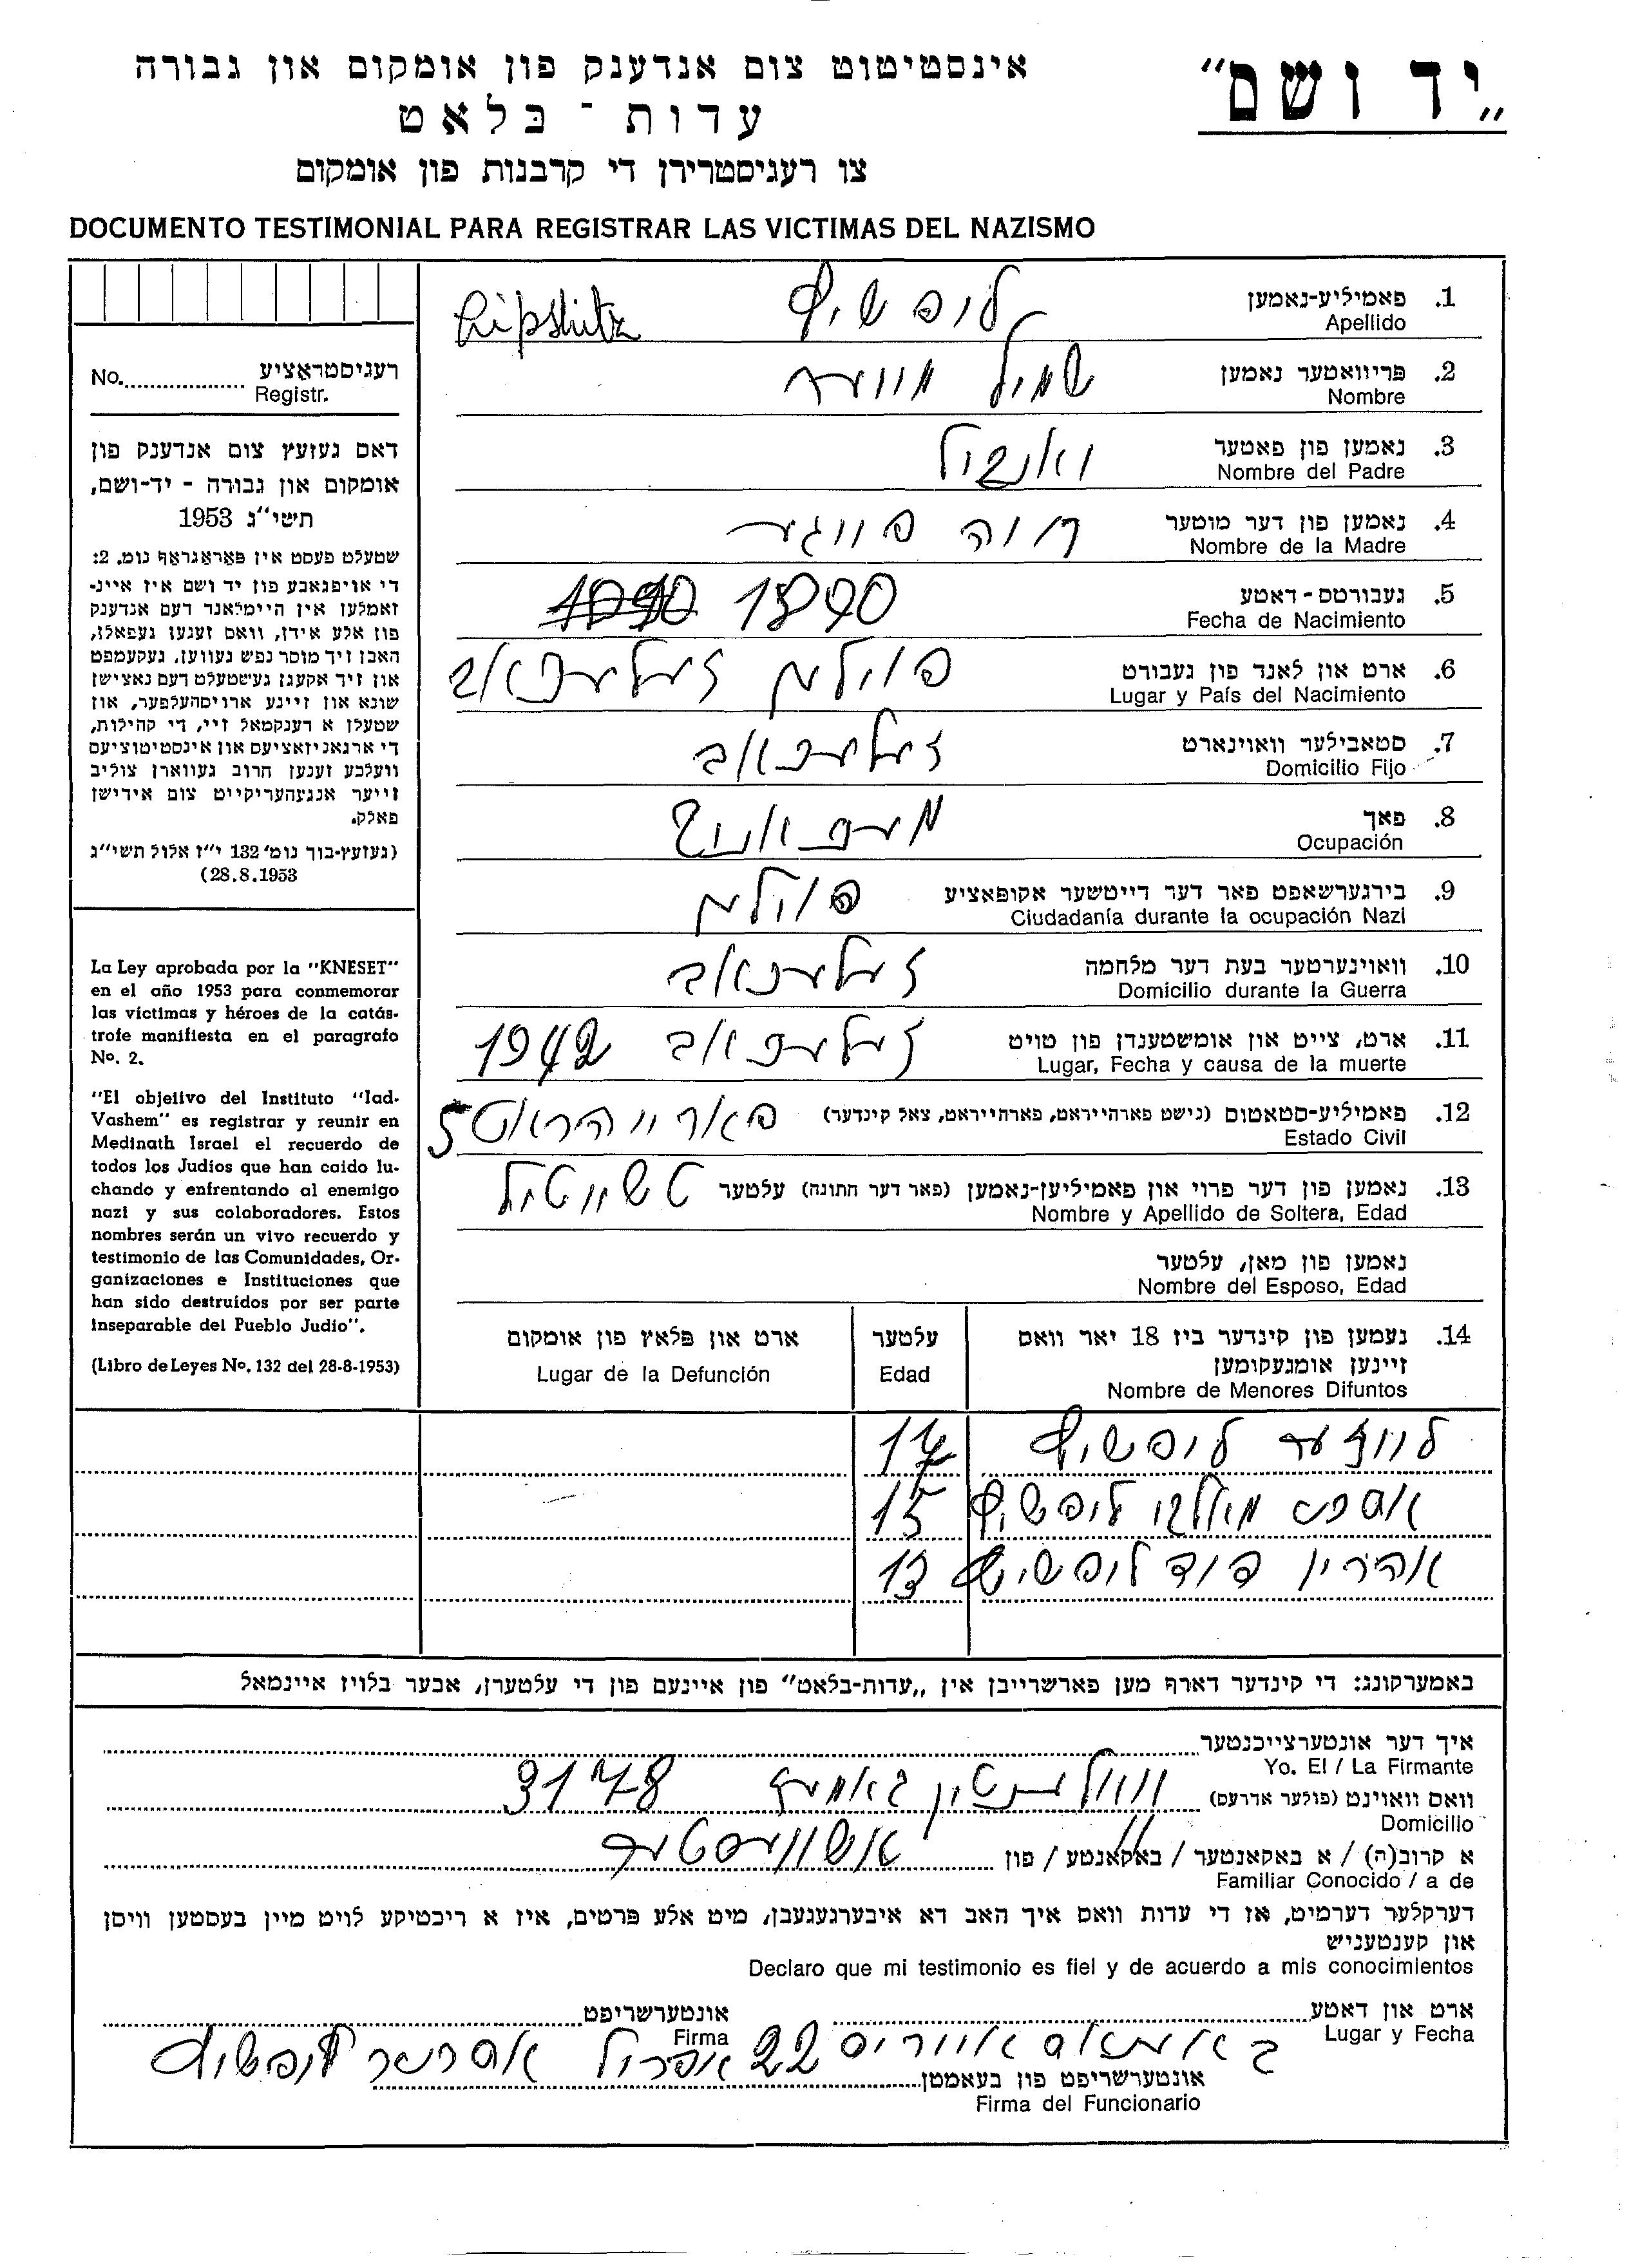 אינסטיטוט צום אנדענק פון אומקום און גבורה
„יד ושם"
עדות-בלאט
צו רעגיסטרירן די קרבנות פון אומקום
DOCUMENTO TESTIMONIAL PARA REGISTRAR LAS VICTIMAS DEL NAZISMO
רעגיסטראציע
No. Registr.
דאס געזעץ צום אנדענק פון
אומקום און גבורה - יד-ושם,
תשי"ג 1953
שטעלט פעסט אין פאראגראף נומ. 2:
די אויפגאבע פון יד ושם איז איינ-
זאמלען אין היימלאנד דעם אנדענק
פון אלע אידן, וואס זענען געפאלן,
האבן זיך מוסר נפש געווען, געקעמפט
און זיך אקעגן געשטעלט דעם נאצישן
שונא און זיינע ארויסהעלפער, און
שטעלן א דענקמאל זיי, די קהילות,
די ארגאניזאציעס און אינסטיטוציעס
וועלכע זענען חרוב געווארן צוליב
זייער אנגעהעריקייט צום אידישן
פאלק.
(געזעץ-בוך נומ' 132 י"ז אלול תשי"ג
28.8.1953)
La Ley aprobada por la "KNESET"
en el año 1953 para conmemorar
las víctimas y héroes de la catás-
trofe manifiesta en el paragrafo
Nº. 2.
"El objetivo del Instituto "Iad-
Vashem" es registrar y reunir en
Medinath Israel el recuerdo de
todos los Judíos que han caido lu-
chando y enfrentando al enemigo
nazi y sus colaboradores. Estos
nombres serán un vivo recuerdo y
testimonio de las Comunidades, Or-
ganizaciones e Instituciones que
han sido destruídos por ser parte
inseparable del Pueblo Judio".
(Libro de Leyes Nº. 132 del 28-8-1953)
1. פאמיליע-נאמען ליפשיץ Lipshitz
Apellido
2. פריוואטער נאמען שמיל מווער
Nombre
3. נאמען פון פאטער
Nombre del Padre
4. נאמען פון דער מוטער חוה פוויגער
Nombre de la Madre
5. געבורטס-דאטע 1890
Fecha de Nacimiento
6. ארט און לאנד פון געבורט פוילען זעלעכאוו
Lugar y País del Nacimiento
7. סטאבילער וואוינארט זעלעכאוו
Domicilio Fijo
8. פאך
Ocupación
9. בירגערשאפט פאר דער דייטשער אקופאציע פוילען
Ciudadanía durante la ocupación Nazi
10. וואוינערטער בעת דער מלחמה זעלעכאוו
Domicilio durante la Guerra
11. ארט, צייט און אומשטענדן פון טויט זעלעכאוו 1942
Lugar, Fecha y causa de la muerte
12. פאמיליע-סטאטוס (נישט פארהייראט, פארהייראט, צאל קינדער) פארייהראט 5
Estado Civil
13. נאמען פון דער פרוי און פאמיליען-נאמען (פאר דער חתונה) עלטער טשייטיל
Nombre y Apellido de Soltera, Edad
נאמען פון מאן, עלטער
Nombre del Esposo, Edad
14. נעמען פון קינדער ביז 18 יאר וואס עלטער ארט און פלאץ פון אומקום
זיינען אומגעקומען
Nombre de Menores Difuntos Edad Lugar de la Defunción
ליפשיץ 17
ליפשיץ 15
אהרין דוד ליפשיץ 13
באמערקונג: די קינדער דארף מען פארשרייבן אין „עדות-בלאט" פון איינעם פון די עלטערן, אבער בלויז איינמאל
איך דער אונטערצייכנטער
Yo. El / La Firmante
וואס וואוינט (פולער אדרעס) וואלענטין גאמעז 3178
Domicilio
א קרוב(ה) / א באקאנטער / באקאנטע / פון אשוועסטער
Familiar Conocido / a de
דערקלער דערמיט, אז די עדות וואס איך האב דא איבערגעגעבן, מיט אלע פרטים, איז א ריכטיקע לויט מיין בעסטען וויסן
און קענטעניש
Declaro que mi testimonio es fiel y de acuerdo a mis conocimientos
ארט און דאטע אונטערשריפט
Lugar y Fecha Firma
22 אפריל אסתער ליפשיץ
אונטערשריפט פון בעאמטן
Firma del Funcionario